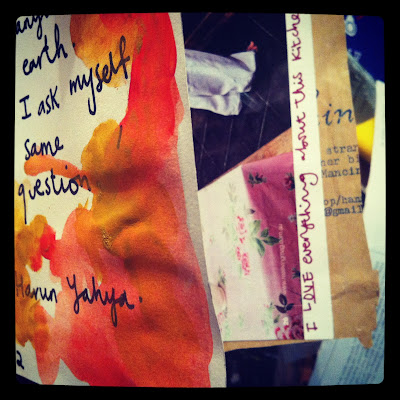 earth.
I ask myself
same
question
Harun Yahya.
2
I LOVE everything about this Kitche
in
atran
her bi
Mancin
op/han
@gmail